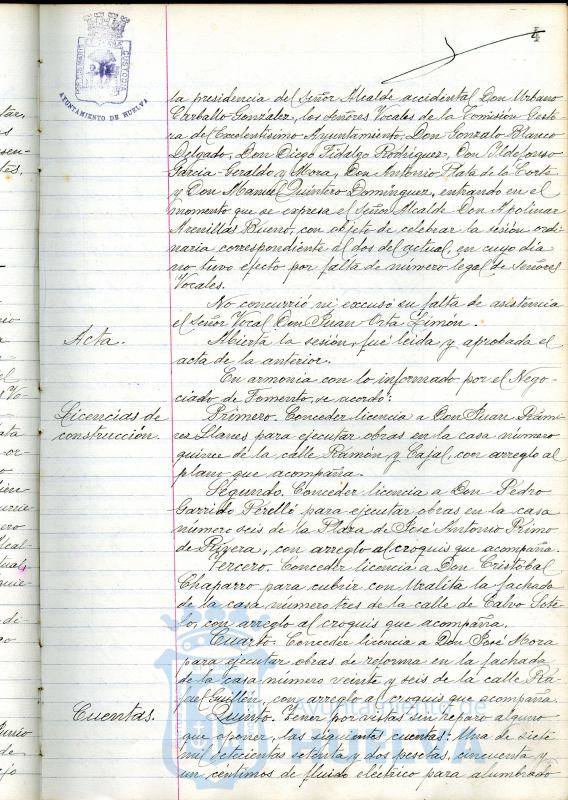 4
AYUNTAMIENTO DE HUELVA
la presidencia del Señor Alcalde accidental Don Urbano
Carballo González, los señores Vocales de la Comisión Gesto-
ra del Excelentísimo Ayuntamiento, Don Gonzalo Blanco
Delgado, Don Diego Fidalgo Rodríguez, Don Ildefonso
García-Geraldo y Mora, Don Antonio Plata de la Corte
y Don Manuel Quintero Domínguez, entrando en el
momento que se expresa el Señor Alcalde Don Apolinar
Arenillas Bueno, con objeto de celebrar la sesión ordi-
naria correspondiente al dos del actual, en cuyo día
no tuvo efecto por falta de número legal de Señores
Vocales.
No concurrió ni excusó su falta de asistencia
el Señor Vocal Don Juan Orta Limón.
Acta.
Abierta la sesión, fué leida y aprobada el
acta de la anterior.
En armonia con lo informado por el Nego-
ciado de Fomento, se acordó:
Licencias de
construcción.
Primero. Conceder licencia a Don Juan Rámi-
rez Llanes para ejecutar obras en la casa numero
quince de la calle Ramón y Cajal, con arreglo al
plano que acompaña.
Segundo. Conceder licencia a Don Pedro
Garrido Perelló para ejecutar obras en la casa
número seis de la Plaza de José Antonio Primo
de Rivera, con arreglo al croquis que acompaña.
Tercero. Conceder licencia a Don Cristóbal
Chaparro para cubrir con Uralita la fachada
de la casa numero tres de la calle de Calvo Sote-
lo, con arreglo al croquis que acompaña.
Cuarto. Conceder licencia a Don José Mora
para ejecutar obras de reforma en la fachada
de la casa número veinte y seis de la calle Ra-
fael Guillén, con arreglo al croquis que acompaña.
Cuentas.
Quinto. Tener por vistas sin reparo alguno
que oponer, las siguientes cuentas: Una de siete
mil setecientas setenta y dos pesetas, cincuenta y
un céntimos de fluido eléctrico para alumbrado
Ayuntamiento de
HUELVA